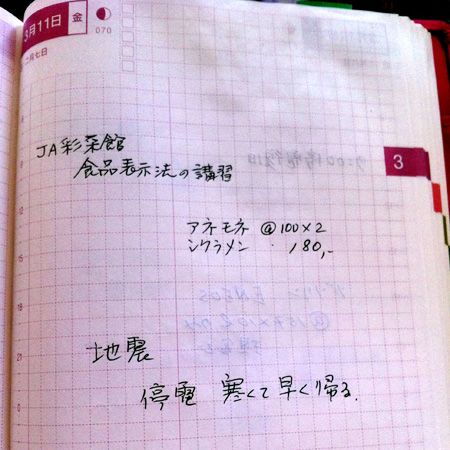 3月11日 金
070
二月七日
3
JA彩菜館
食品表示法の講習
アネモネ @100×2
シクラメン 180,-
地震
停電 寒くて早く帰る.
21